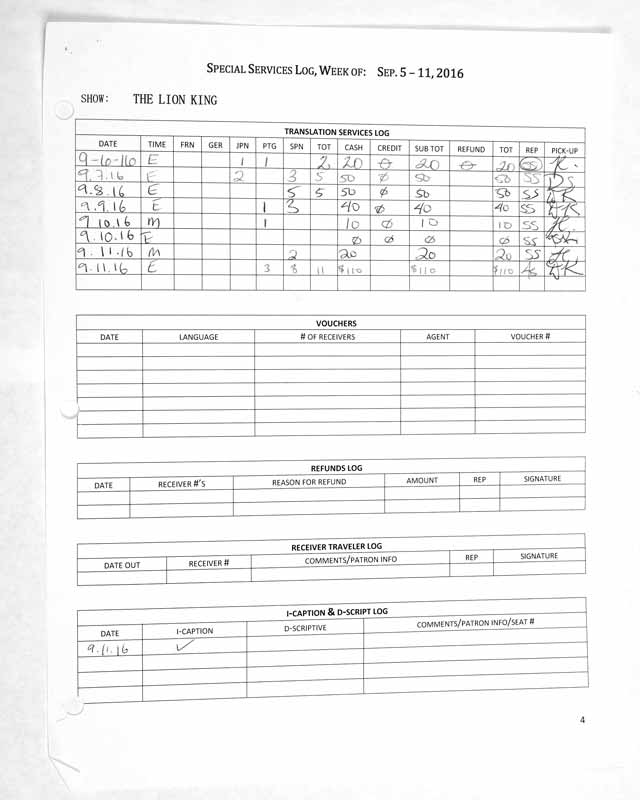 SPECIAL SERVICES LOG, WEEK OF: SEP. 5 – 11, 2016
SHOW: THE LION KING
TRANSLATION SERVICES LOG
DATE TIME FRN GER JPN PTG SPN TOT CASH CREDIT SUB TOT REFUND TOT REP PICK-UP
E 1 1 2 20 0 20 0 20 SS
9.7.16 E 2 3 5 50 0 50 50 SS DS
9.8.16 E 5 5 50 0 50 50 SS
9.9.16 E 1 3 40 0 40 40 SS
9.10.16 M 1 10 0 10 10 SS
9.10.16 E 0 0 0 0 SS
9.11.16 M 2 20 20 20 SS
9.11.16 E 3 8 11 $110 $110 $110
VOUCHERS
DATE LANGUAGE # OF RECEIVERS AGENT VOUCHER #
REFUNDS LOG
DATE RECEIVER #'S REASON FOR REFUND AMOUNT REP SIGNATURE
RECEIVER TRAVELER LOG
DATE OUT RECEIVER # COMMENTS/PATRON INFO REP SIGNATURE
I-CAPTION & D-SCRIPT LOG
DATE I-CAPTION D-SCRIPTIVE COMMENTS/PATRON INFO/SEAT #
9.11.16 ✓
4